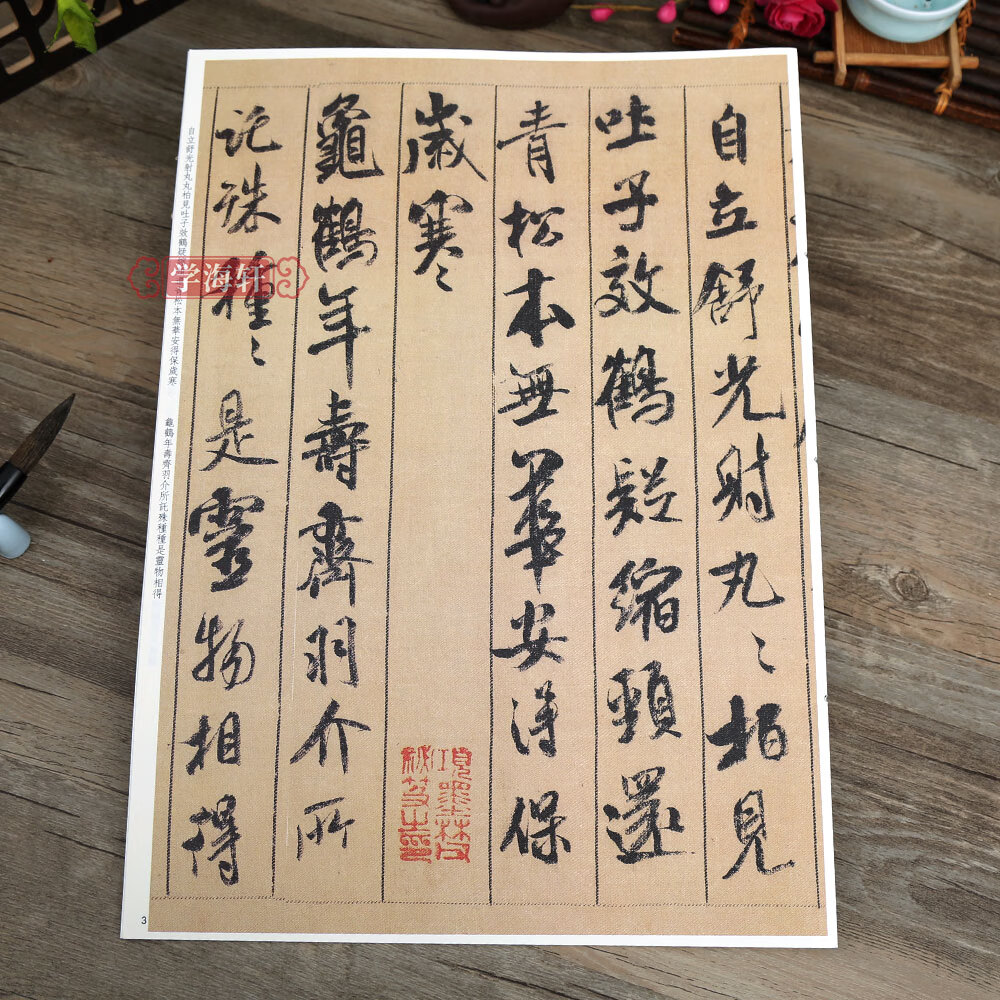 自立舒光射丸〻柏見
吐子效鶴疑縮頸還
青松本無華安得保
歲寒〻
項墨林父
祕笈之印
龜鶴年壽齊羽介所
託殊種〻是靈物相得
自立舒光射丸丸柏見吐子效鶴疑
松本無華安得保歲寒
龜鶴年壽齊羽介所託殊種種是靈物相得
学海轩
3